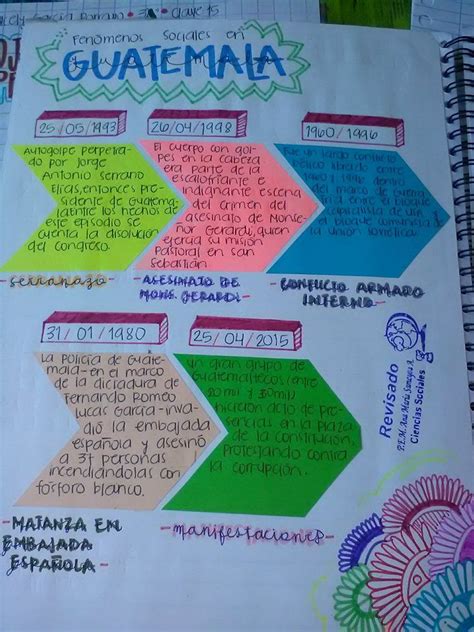 García Romano 31 Clave 15
Fenómenos Sociales en
GUATEMALA
25/05/1993
Autogolpe perpetra-
do por Jorge
Antonio Serrano
Elías, entonces pre-
sidente de Guatema-
la entre los hechos de
este episodio se
cuenta la disolución
del congreso.
-Serranazo-
26/04/1998
El cuerpo con gol-
pes en la cabeza
era parte de la
escalofriante e
indignante escena
del crimen del
asesinato de Monse-
ñor Gerardi, quien
ejercía su misión
Pastoral en San
Sebastián.
-ASESINATO DE
MONS. GERARDI-
1960/1996
Fue un largo conflicto
bélico librado entre
1960 y 1996 dentro
del marco de guerra
fría entre el bloque
capitalista de
el bloque comunista de
la unión soviética.
-CONFLICTO ARMADO
INTERNO-
31/01/1980
La Policía de Guate-
mala-en el marco
de la dictadura de
Fernando Romeo
Lucas García-inva-
dió la embajada
española y asesinó
a 37 personas
incendiándolas con
fósforo blanco.
-MATANZA EN
EMBAJADA
ESPAÑOLA-
25/04/2015
Un gran grupo de
Guatemaltecos/entre
20 mil y 30 mil/
hicieron acto de pre-
sencias en la plaza
de la constitución,
Protestando contra
la corrupción.
-manifestaciones-
Revisado
P.E.M. Ana María
Ciencias Sociales